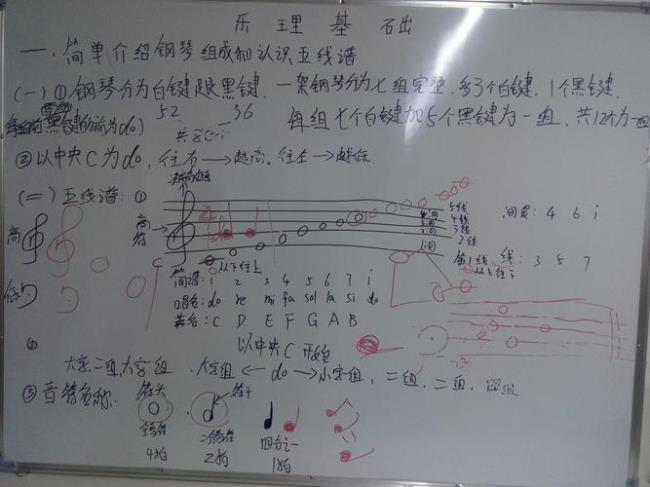 乐理基石出
一、简单介绍钢琴组成和认识五线谱
(一)①钢琴分为白键跟黑键,一架钢琴分为七组完整,多3个白键,1个黑键.
52 36
每组七个白键加5个黑键为一组,共12个为一组
为do)
②以中央C为do,往右→越高,往左→越低
(二)五线谱:①
高
低
5线
4线
3线
2线
第1线
1间
间是:4 6 i
线:3 5 7
从下往上
简谱:1 2 3 4 5 6 7 i
唱名:do re mi fa sol la si do
音名:C D E F G A B
②
以中央C开始
大字二组,大字组.大字组←do→小字组,
③音符名称:
符头
符干
全音符
二分音符
四分之一
4拍
2拍
1拍